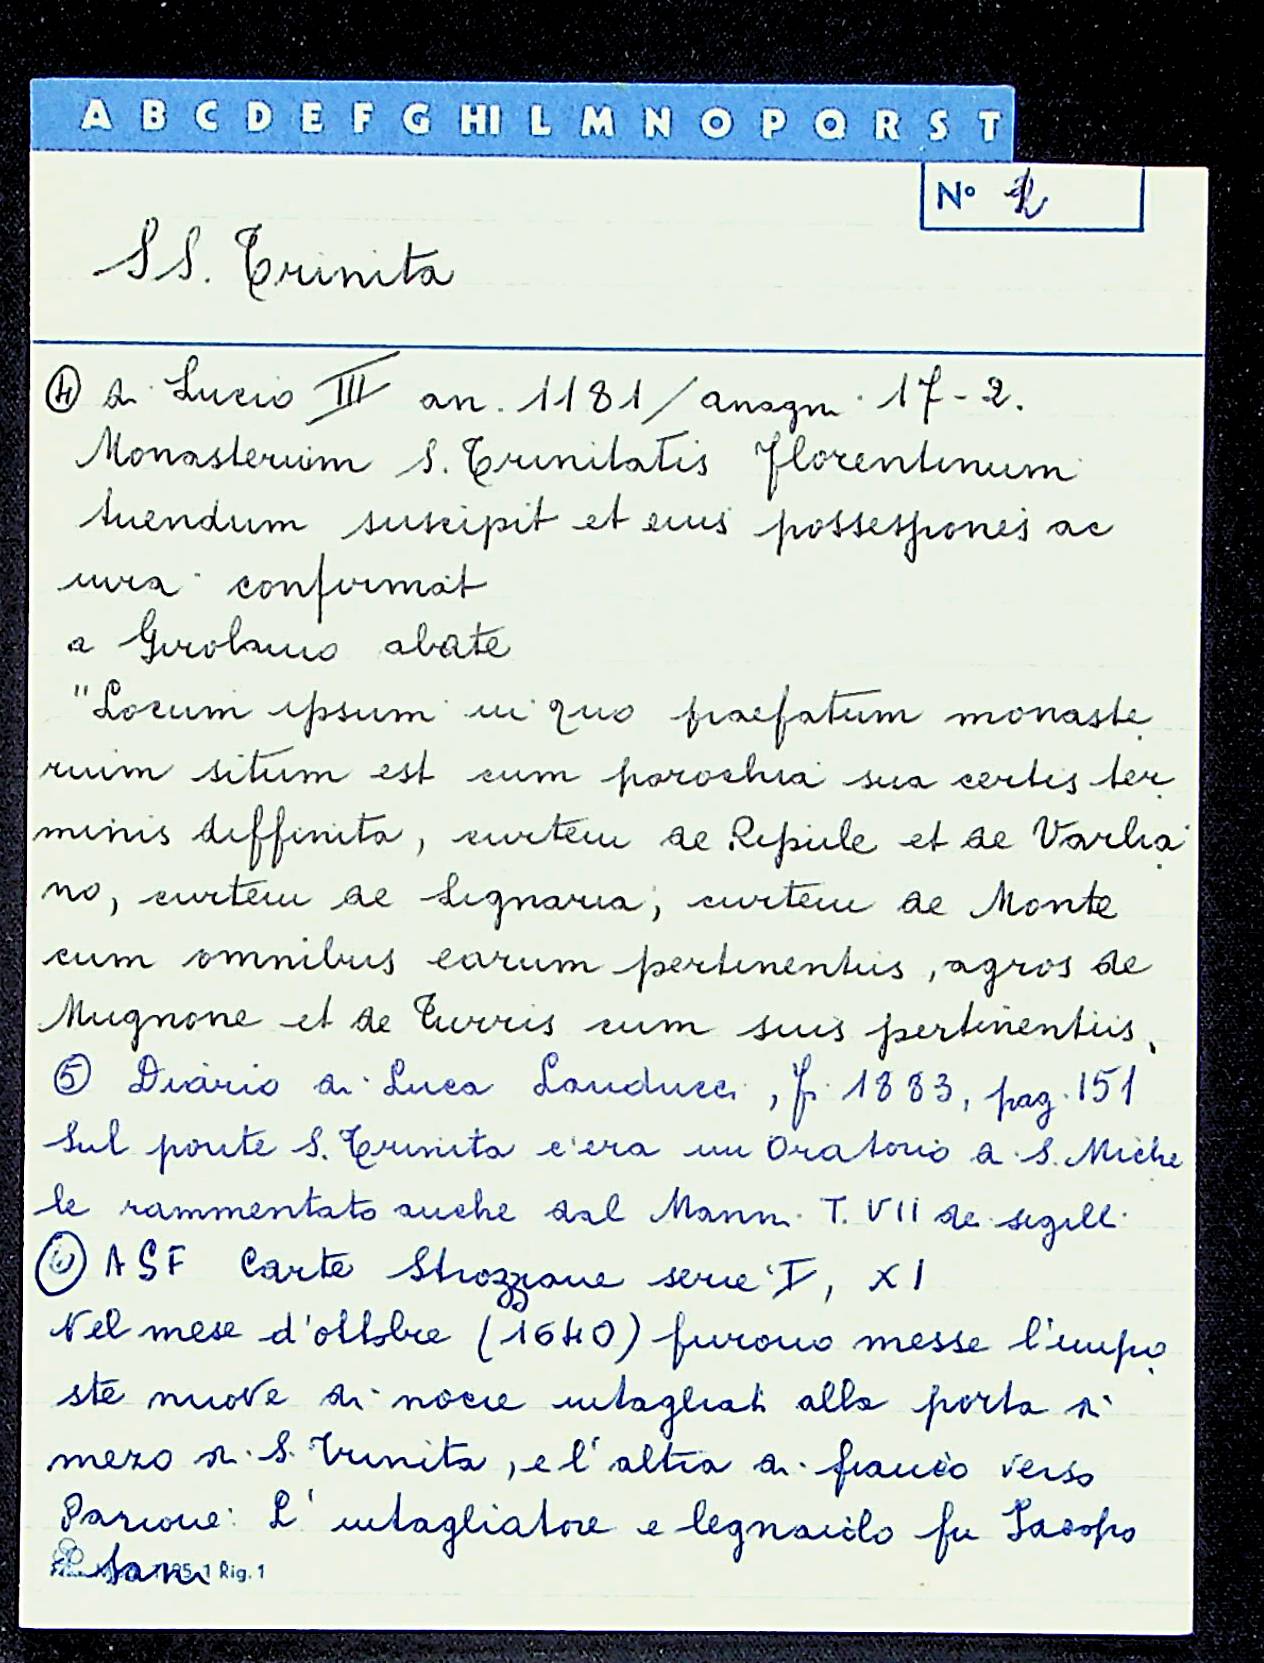 A B C D E F G HI L M N O P Q R S T
N° 2
SS. Trinita
④ di Lucio III an. 1181 / anagni 17-2.
Monasterium S. Trinitatis Florentinum
tuendum suscipit et eius possessiones ac
iura confirmat
a Girolamo abate
"Locum ipsum in quo praefatum monaste
rium situm est cum parochia sua certis ter
minis diffinita, curtem de Ripule et de Varlia
no, curtem de Signaria, curtem de Monte
cum omnibus earum pertinentiis, agros de
Mugnone et de Turris cum suis pertinentiis.
⑤ Diario di Luca Landucci, f. 1883, pag. 151
Sul ponte S. Trinita c'era un Oratorio a S. Miche
le rammentato anche dal Manni T. VII dei sigill.
⑥ ASF Carte Strozziane serie I, XI
Nel mese d'ottobre (1640) furono messe l'impo
ste nuove di noce intagliati alla porta di
mezo di S. Trinita, e l'altra di fianco verso
Parione: L'intagliatore e legnaiolo fu Jacopo
Sani Rig. 1